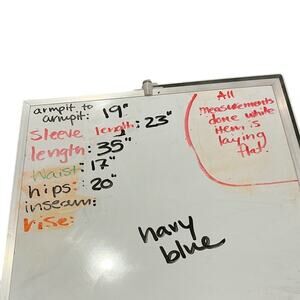 armpit to
armpit: 19"
sleeve length: 23"
length: 35"
Waist: 17"
hips: 20"
inseam:
rise:
All
measurements
done while
item is
laying
flat.
navy
blue